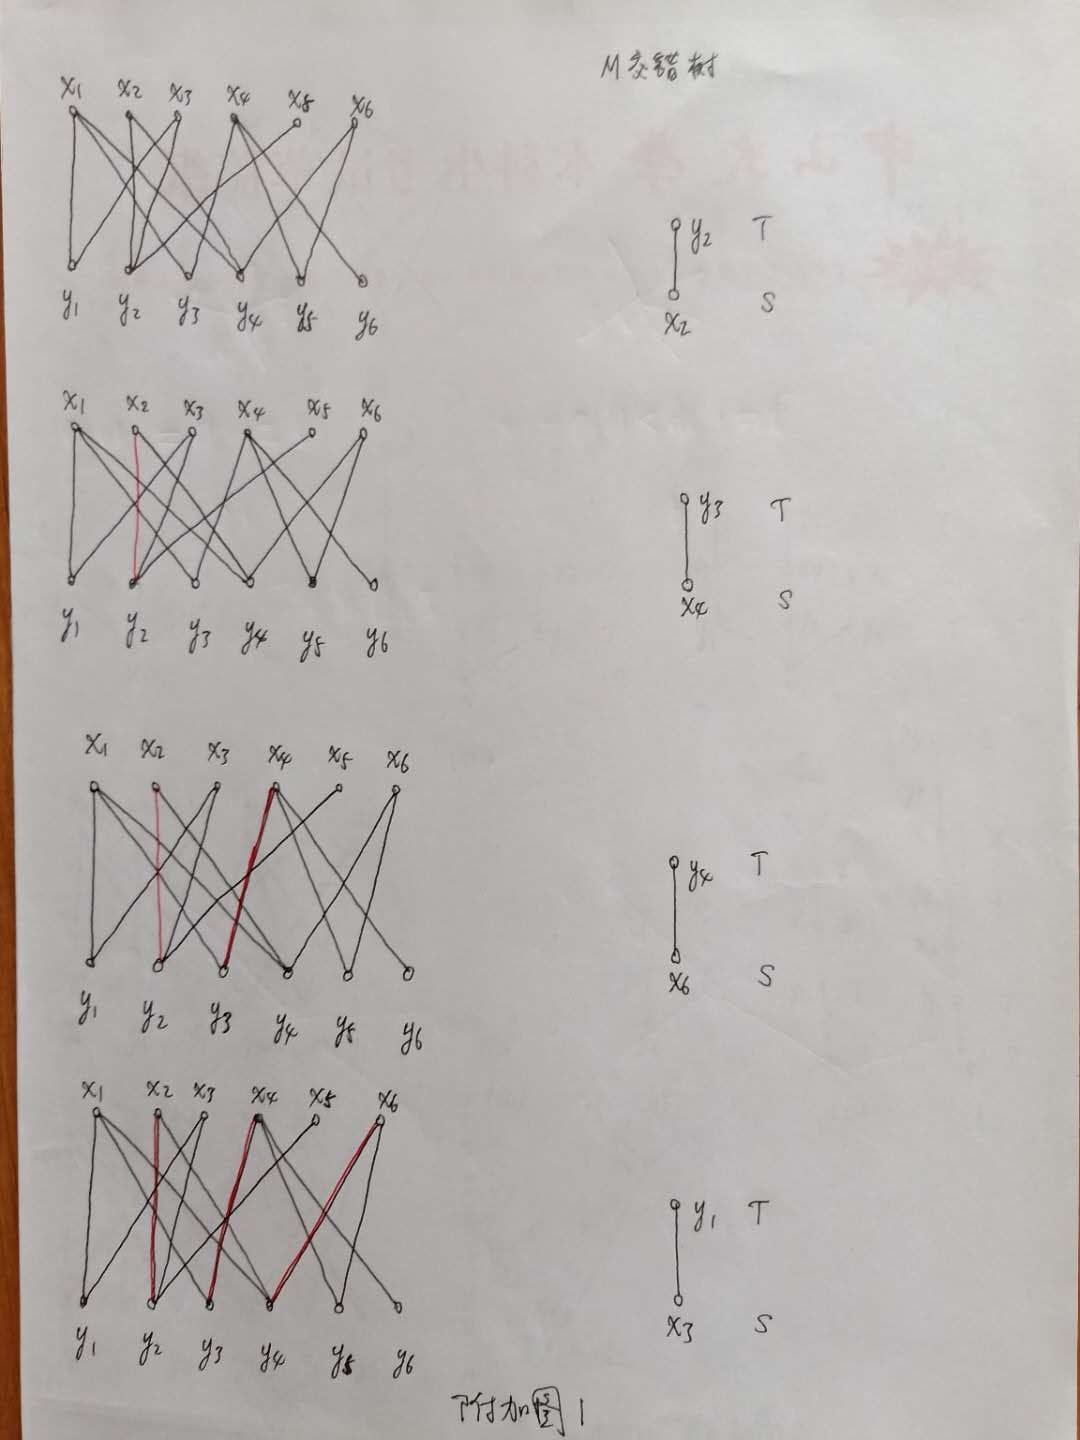 M交错树
x1 x2 x3 x4 x5 x6
y1 y2 y3 y4 y5 y6
y2 T
x2 S
x1 x2 x3 x4 x5 x6
y1 y2 y3 y4 y5 y6
y3 T
x4 S
x1 x2 x3 x4 x5 x6
y1 y2 y3 y4 y5 y6
y4 T
x6 S
x1 x2 x3 x4 x5 x6
y1 y2 y3 y4 y5 y6
y1 T
x3 S
附加图1